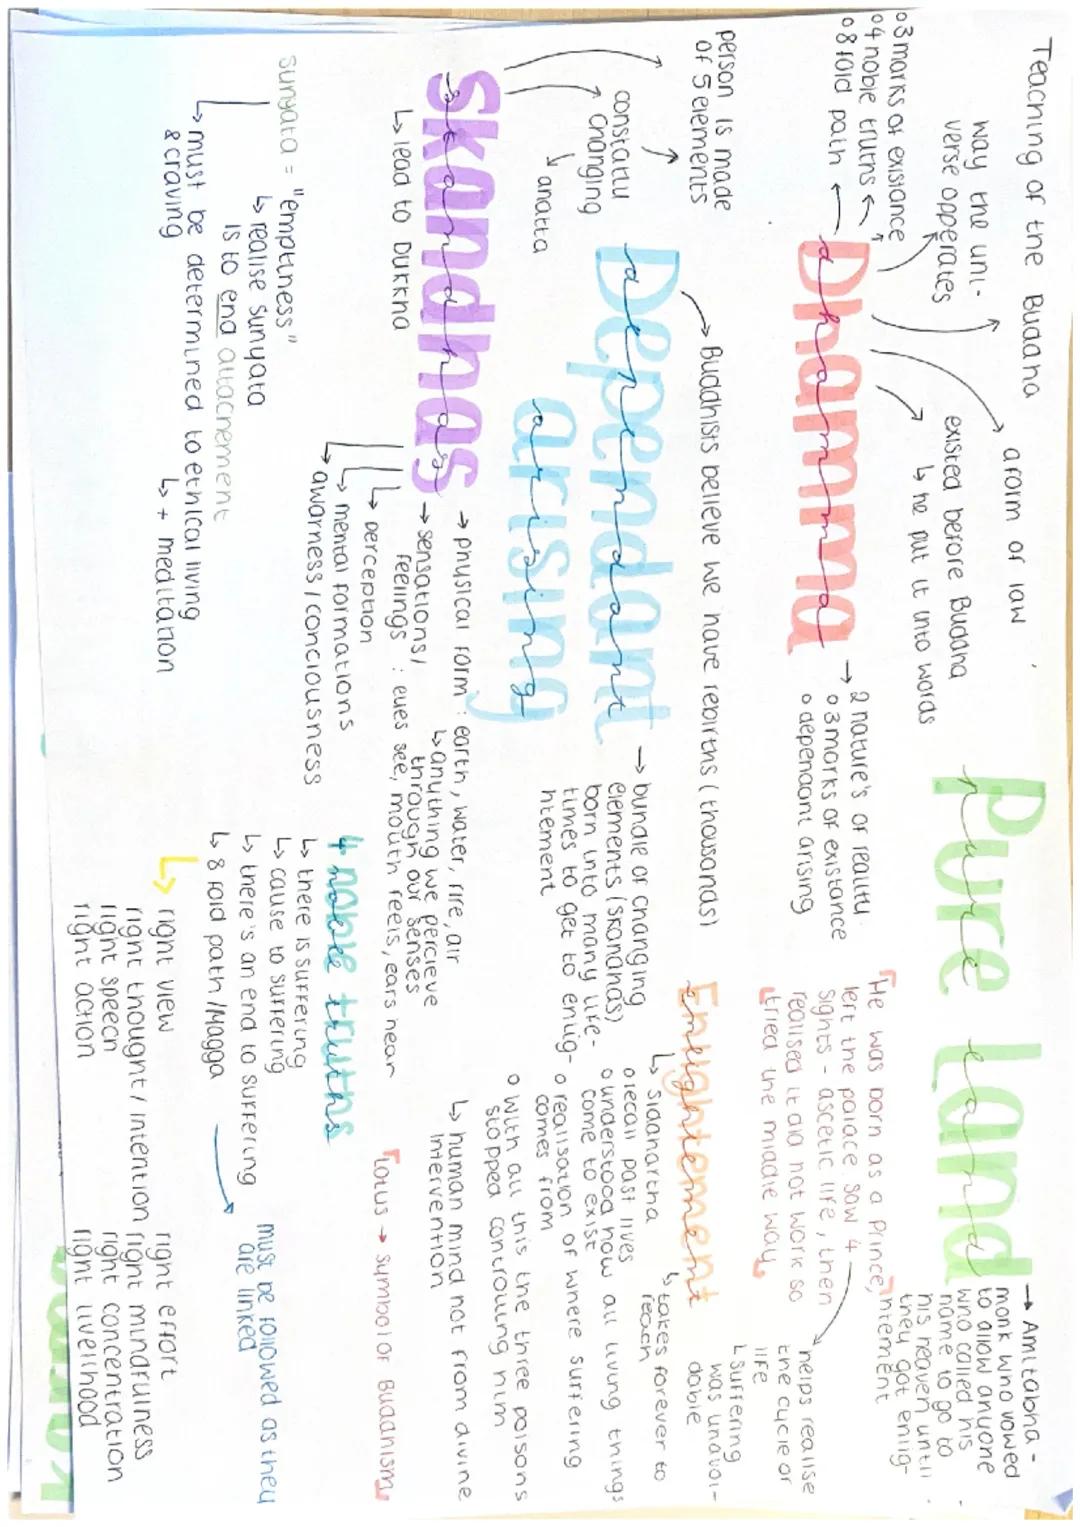 Teaching of the Buddha
way the uni-
verse opperates
a form of law
existed before Buddha
↳ he put it into words
o 3 marks of existance
o 4 noble truths
o 8 fold path
Dhamma
dhamma
→ 2 nature's of reality
o 3 marks of existance
o dependant arising
Pure Land
pure land
→ Amitabha -
monk who vowed
to allow anyone
who called his
name to go to
his heaven until
they got enlig-
ntement
He was born as a Prince,
left the palace saw 4
sights - ascetic life, then
realised it did not work so
tried the middle way
helps realise
the cycle of
life
↳ suffering
was unavoi-
dable
person is made
of 5 elements
constatlu
changing
↓ anatta
→ Buddhists believe we have rebirths (thousands)
Dependant
dependant
arising
arising
→ bundle of changing
elements (skandhas)
born into many life-
times to get to enlig-
ntement
Eneightement
eneightement
↳ Sidanartha
o recall past lives
o understood how all living things
come to exist
o realisation of where suffering
comes from
o With all this the three poisons
stopped controlling him
↳ takes forever to
reach
↳ human mind not from divine
intervention
Skandhas
skandhas
↳ lead to Dukkha
→ physical form : earth, water, fire, air
↳ anything we percieve
through our senses
→ sensations/
feelings : eyes see, mouth feels, ears hear
↳ perception
↳ mental formations
↳ awarness / conciousness
Lotus → symbol of Buddhism
sunyata = "emptiness"
↳ realise sunyata
is to end attachement
↳ must be determined to ethical living
& craving
↳ + meditation
4 noble truths
↳ there is suffering
↳ cause to suffering
↳ there's an end to suffering
↳ 8 fold path / Magga
must be followed as they
are linked
↳ right view
right thought / intention
right speech
right action
right effort
right mindfulness
right concentration
right livelihood